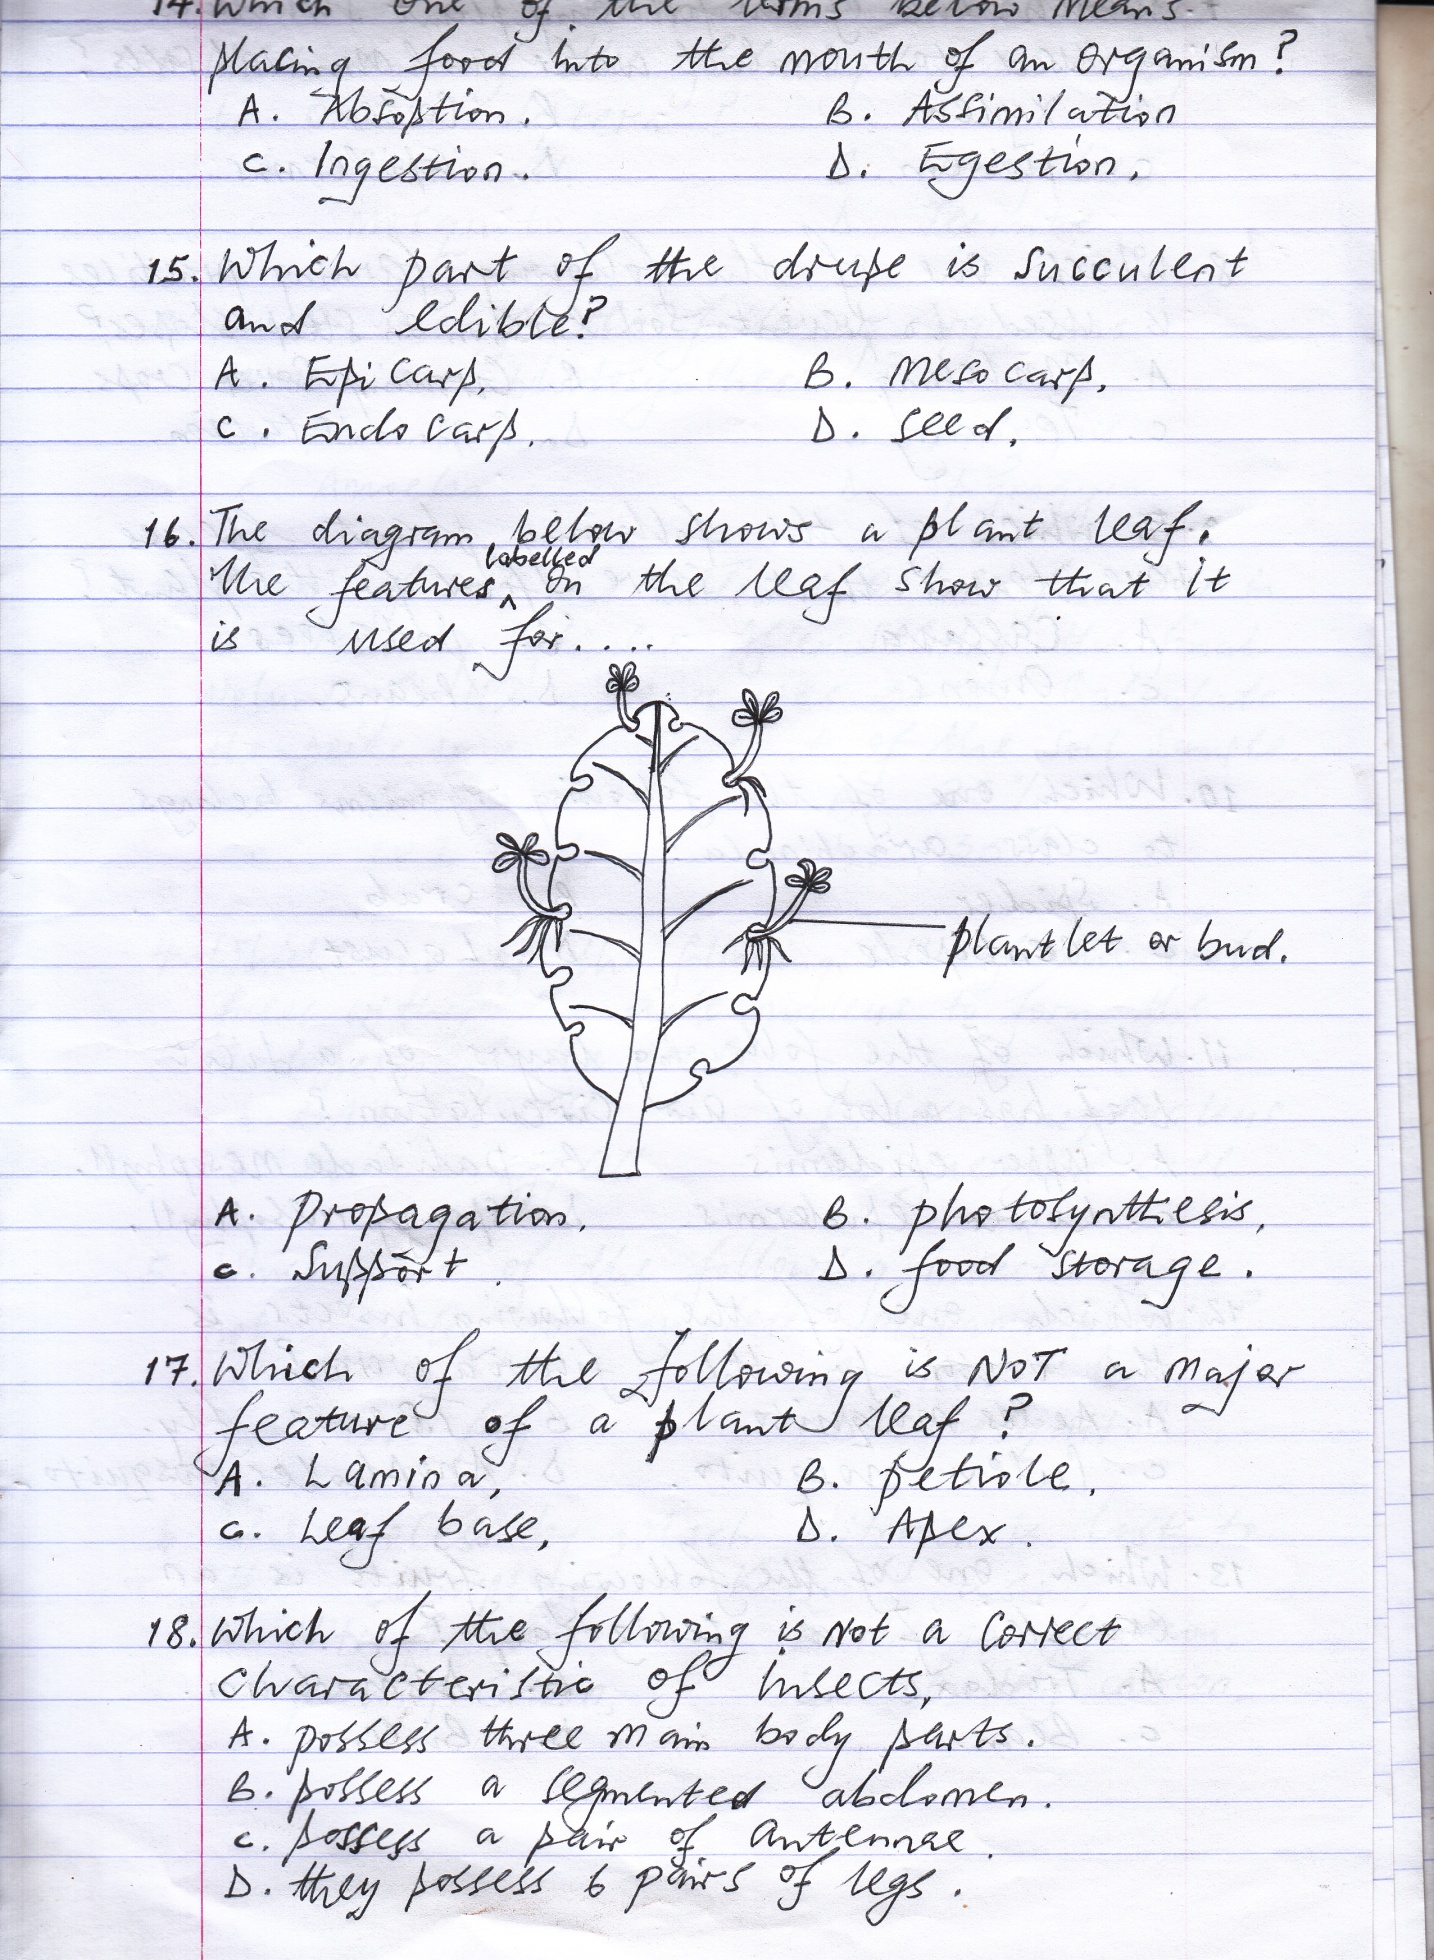 14. Which one of the terms below means
placing food into the mouth of an organism?
A. Absorption. B. Assimilation
C. Ingestion. D. Egestion.
15. Which part of the drupe is succulent
and edible?
A. Epicarp. B. Mesocarp.
C. Endocarp. D. Seed.
16. The diagram below shows a plant leaf.
The features labelled on the leaf show that it
is used for....
plantlet or bud.
A. Propagation. B. photosynthesis.
C. Support. D. food storage.
17. Which of the following is NOT a major
feature of a plant leaf?
A. Lamina, B. petiole.
C. Leaf base, D. Apex.
18. Which of the following is Not a correct
characteristic of insects,
A. possess three main body parts.
B. possess a segmented abdomen.
C. possess a pair of antennae.
D. they possess 6 pairs of legs.